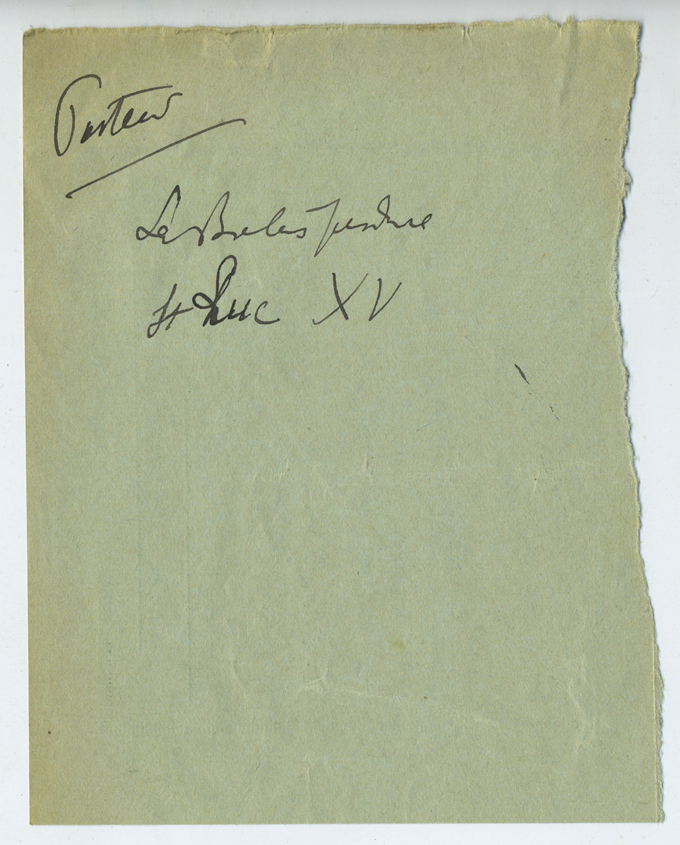 Pasteur
La Brebis perdue
St Luc XV